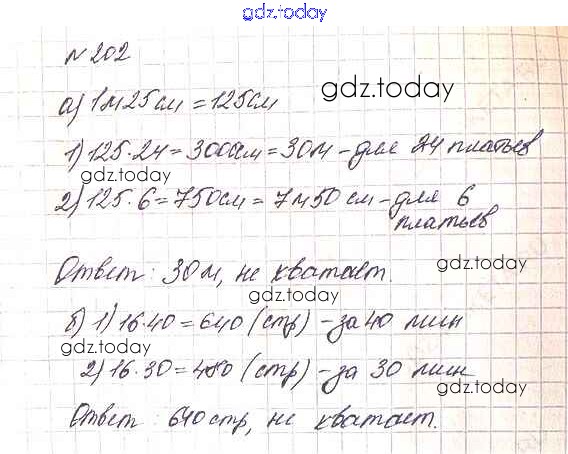 gdz.today
№ 202
а) 1м 25 см = 125 см
gdz.today
1) 125·24 = 3000см = 30 м - для 24 платьев
gdz.today
2) 125·6 = 750 см = 7м 50 см - для 6
платьев
Ответ: 30 м, не хватает.
gdz.today
gdz.today
б) 1) 16·40 = 640 (стр) - за 40 мин
gdz.today
2) 16·30 = 480 (стр) - за 30 мин
gdz.today
Ответ: 640 стр, не хватает.